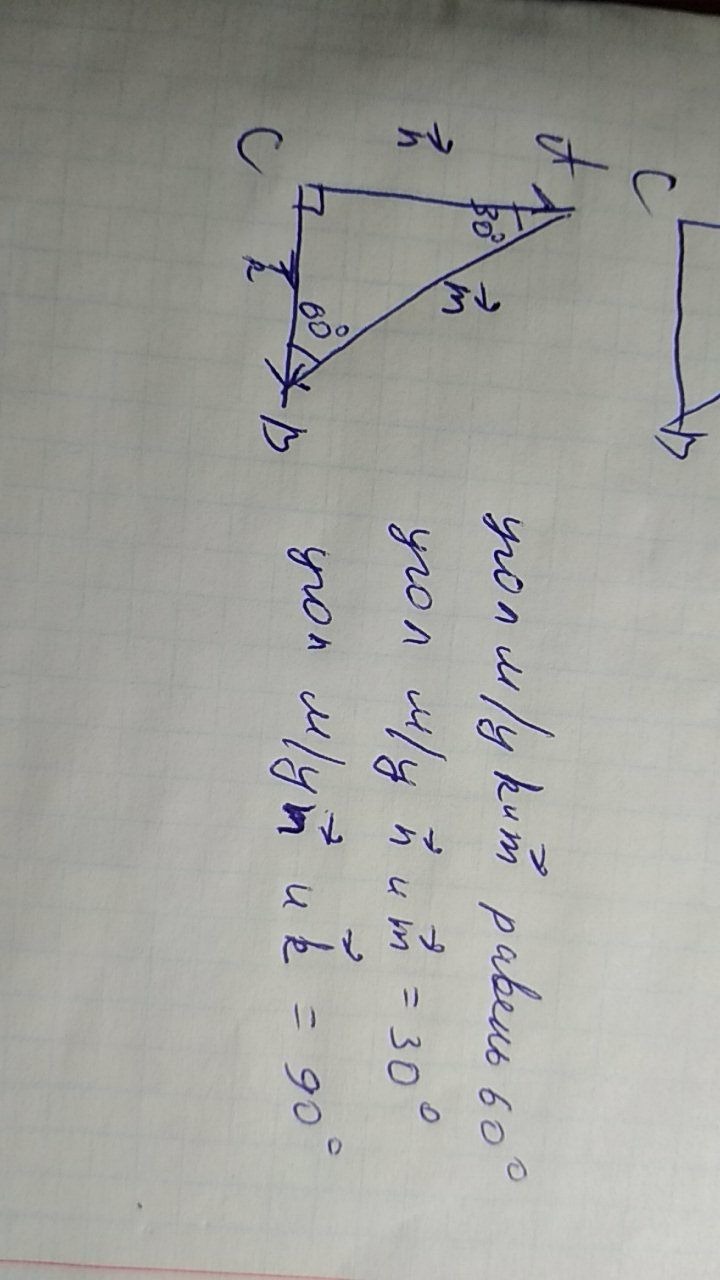 C
B
A
C
B
n⃗
m⃗
k⃗
30°
60°
угол м/у k и m⃗ равень 60°
угол м/у n⃗ и m⃗ = 30°
угол м/у m⃗ и k⃗ = 90°